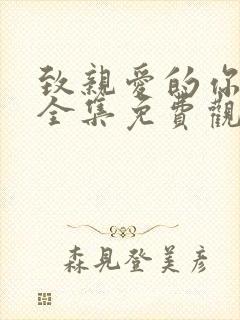 致親愛的你
全集免費觀
森見登美彥